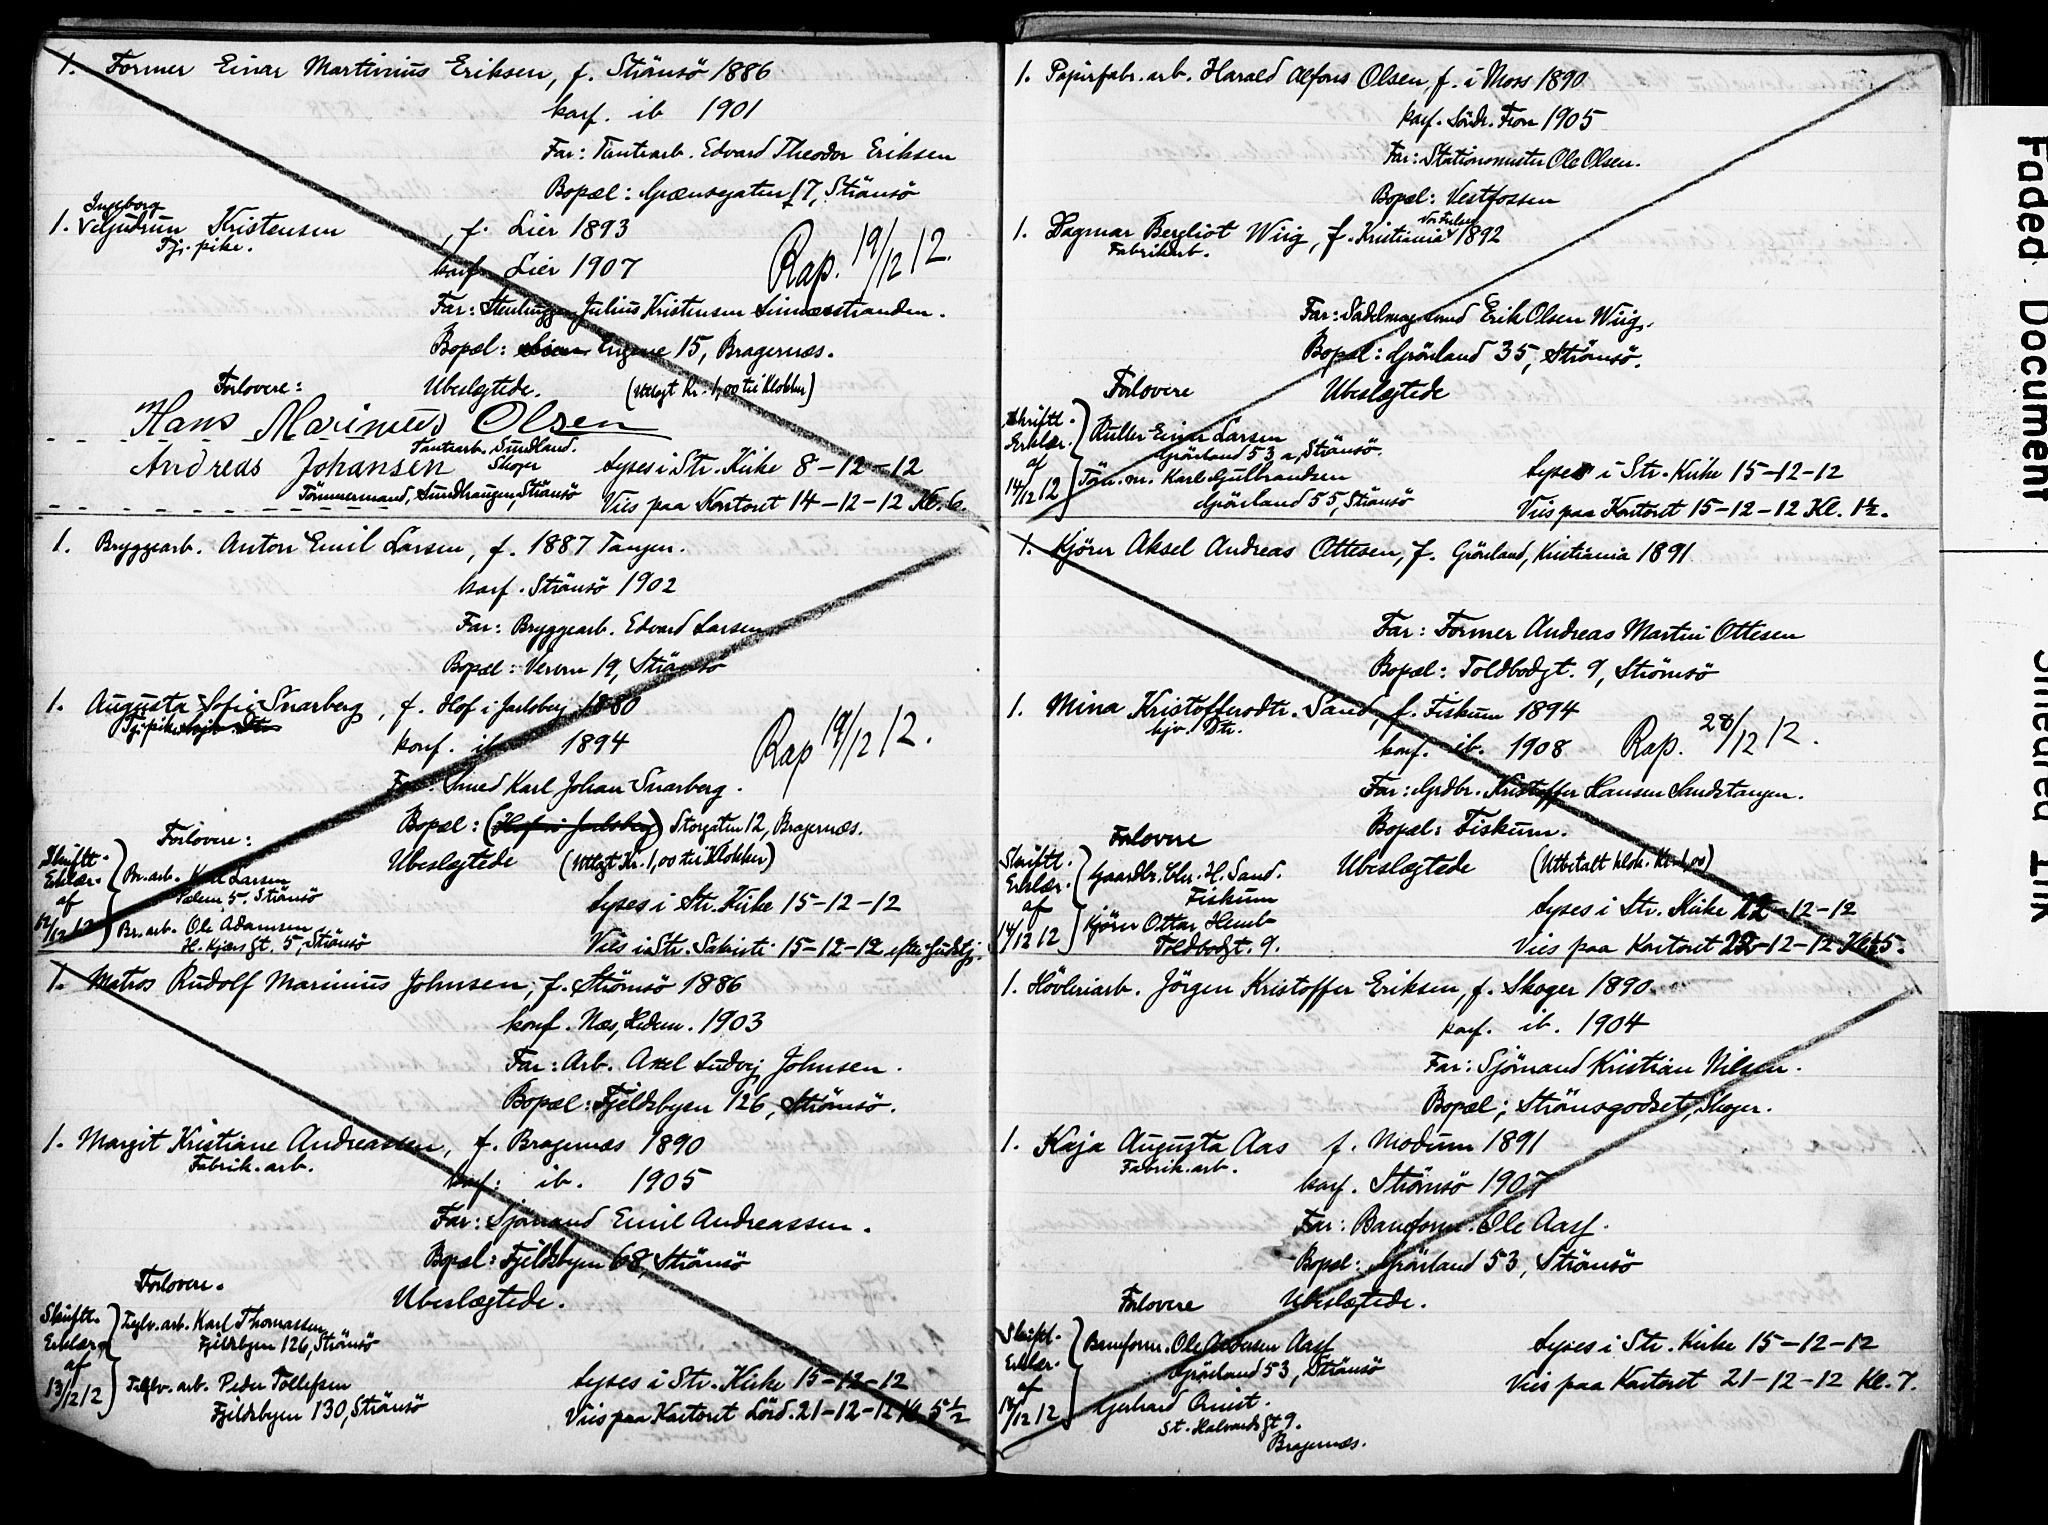 1. Former Einar Martinius Eriksen, f. Strömsö 1886
konf. ib 1901
Far: Tomtearb. Edvard Theodor Eriksen
Bopæl: Grænsegaten 17, Strömsö
Ingeborg
1. Kristensen, f. Lier 1893
Tj. pike.
konf. Lier 1907
Rap. 19/12 12.
Far: Stenhugger Julius Kristensen Linnesstranden.
Bopæl: Engene 15, Bragernæs.
Forlovere: Ubeslegtede. (Utlagt Kr. 1,00 til Klokker)
Hans Marinius Olsen
Tomtearb. Sundland.
Skoger
Andreas Johansen
Tömmermand, Sundhaugen, Strömsö
Lyses i Str. Kirke 8-12-12
Vies paa Kontoret 14-12-12 Kl. 6.
1. Bryggearb. Anton Emil Larsen, f. 1887 Tangen.
konf. Strömsö 1902
Far: Bryggearb. Edvard Larsen
Bopæl: 19, Strömsö
1. Augusta Sofie Snarberg, f. Hof i Jarlsberg 1880
Tj. pike
konf. ib. 1894
Rap 19/12 12.
Far. Smed Karl Johan Snarberg.
Bopæl: (Hof i Jarlsberg) Storgaten 12, Bragernæs.
Forlovere:
Ubeslegtede (Utlagt Kr. 1,00 til Klokker)
Skriftl. Erklær. af 12/12 12
Br. arb. Karl Larsen
5. Strömsö
Br. arb. Ole Adamsen
H. Kjærs gt. 5, Strömsö
Lyses i Str. Kirke 15-12-12
Vies i Str. Sakristi 15-12-12 efter Gudstj.
1. Matros Rudolf Marinius Johnsen, f. Strömsö 1886
konf. Næs, Hedem. 1903
Far: Arb. Axel Ludvig Johnsen.
Bopæl: Fjeldsbyen 126, Strömsö.
1. Margit Kristiane Andreassen, f. Bragernæs 1890
Fabrik. arb.
konf: ib. 1905
Far: Sjömand Emil Andreassen.
Bopæl: Fjeldsbyen 68, Strömsö
Forlovere.
Ubeslegtede.
Skriftl. Erklær. af 13/12 12
Teglv. arb. Karl Thomassen
Fjeldsbyen 126, Strömsö
Teglv. arb. Peder Tollefsen
Fjeldsbyen 130, Strömsö
Lyses i Str. Kirke 15-12-12
Vies paa Kontoret Lörd. 21-12-12 Kl. 5 1/2
1. Papirfabr. arb. Harald Alfons Olsen, f. i Moss 1890
konf. Söndr. Fron 1905
Far: Stationsmester Ole Olsen.
Bopæl: Vestfossen
1. Dagmar Bergliot Wiig, f. Kristiania Vor Frelser 1892
Fabrikarb.
Far: Sadelmagersvend Erik Olsen Wiig.
Bopæl: Grönland 35, Strömsö.
Forlovere
Ubeslegtede
Skriftl. Erklær. af 14/12 12
Ruller Einar Larsen
Grönland 53 a, Strömsö.
Töm. m. Karl Gulbrandsen
Grönland 55, Strömsö
Lyses i Str. Kirke 15-12-12
Vies paa Kontoret 15-12-12 Kl. 1 1/2.
1. Kjörer Aksel Andreas Ottesen, f. Grönland, Kristiania 1891
Far: Former Andreas Martin Ottesen
Bopæl: Toldbodgt. 9, Strömsö
1. Mina Kristoffersdtr. Sand f. Fiskum 1894
hjv. Dtr.
konf. ib. 1908
Rap. 28/12 12.
Far: Grdbr. Kristoffer Hansen Sandstangen.
Bopæl: Fiskum.
Forlovere
Ubeslegtede (Utbetalt klok. Kr. 1,00)
Skriftl. Erklær. af 14/12 12
Gaardbr. Chr. H. Sand.
Fiskum
Kjörer Ottar Hemb
Toldbodgt. 9.
Lyses i Str. Kirke 22-12-12
Vies paa Kontoret 22-12-12 Kl. 5.
1. Hövleriarb. Jörgen Kristoffer Eriksen, f. Skoger 1890
konf. ib. 1904
Far: Sjömand Kristian Nilsen.
Bopæl: Strömsgodset, Skoger.
1. Kaja Augusta Aas f. Modum 1891
Fabrik. arb.
konf. Strömsö 1907
Far: Baneform. Ole Aass.
Bopæl: Grönland 53, Strömsö
Forlovere
Ubeslegtede.
Skriftl. Erklær. af 14/12 12
Baneform. Ole Andersen Aass
Grönland 53, Strömsö
Gerhard
St. Halvards gt 9.
Bragernæs.
Lyses i Str. Kirke 15-12-12
Vies paa Kontoret 21-12-12 Kl. 7.
Faded Document
Smeared Ink